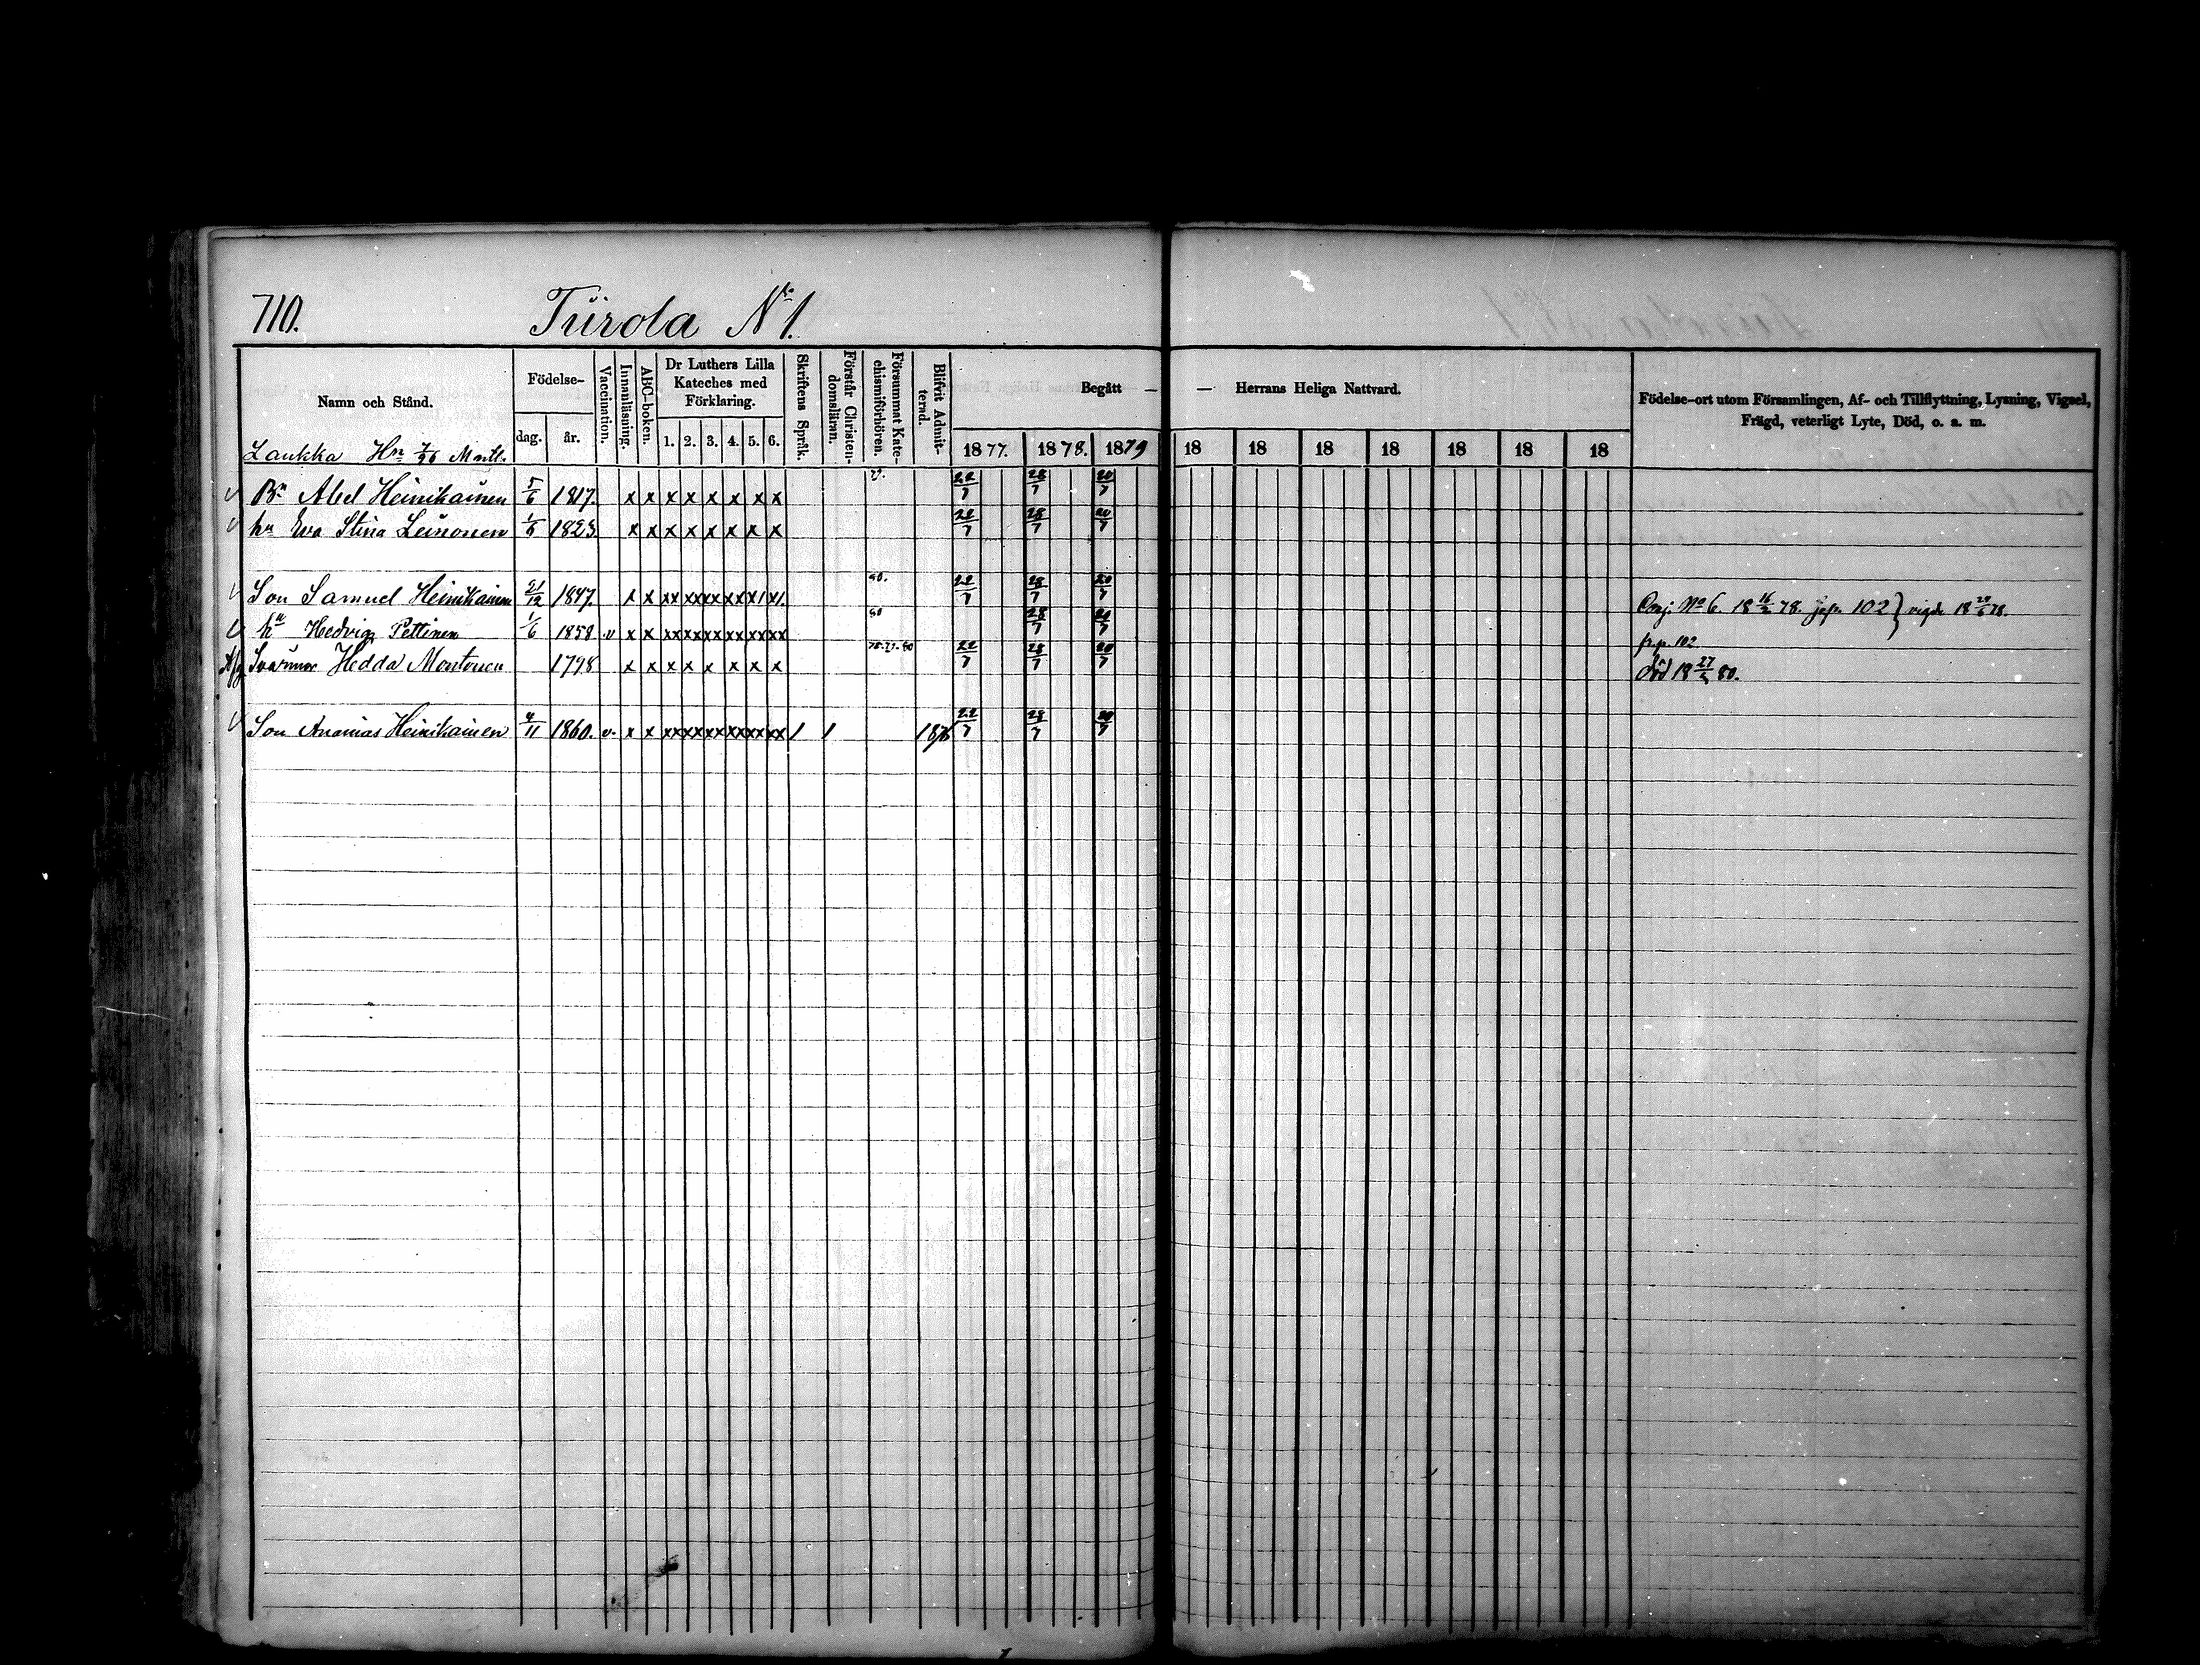 710. Tiirola No 1.
Namn och Stånd. Födelse- dag. år. Vaccination. Innanläsning. ABC-boken. Dr Luthers Lilla Kateches med Förklaring. 1. 2. 3. 4. 5. 6. Skriftens Språk. Förstår Christendomsläran. Försummat Katechismiförhören. Blifvit Admitterad. Begått — — Herrans Heliga Nattvard. Födelse-ort utom Församlingen, Af- och Tillflyttning, Lysning, Vigsel, Frägd, veterligt Lyte, Död, o. a. m.
1877. 1878. 1879 18 18 18 18 18 18 18
Laukka Hn 7/96 Mantl.
Bn Abel Heinikainen 5/6 1817. x x x x x x x x 79. 22/7 28/7 20/7
hu Eva Stina Leinonen 1823. x x x x x x x x 22/7 28/7 20/7
Son Samuel Heinikainen 21/12 1847. x x xx xx xx xx x1 x1. 80. 22/7 28/7 20/7 No 6 18 16/2 78. 102 } vigde 18 78.
hu Hedvig Pettinen 1/6 1858 v x x xx xx xx xx xx xx 80 28/7 20/7 102
Hedda Montonen 1798 x x x x x x x x 78. 79. 80 22/7 28/7 20/7 död 18 27/5 80.
Son Ananias Heinikainen 4/11 1860. v. x x xx xx xx xx xx xx 1 1 1876 22/7 28/7 20/7